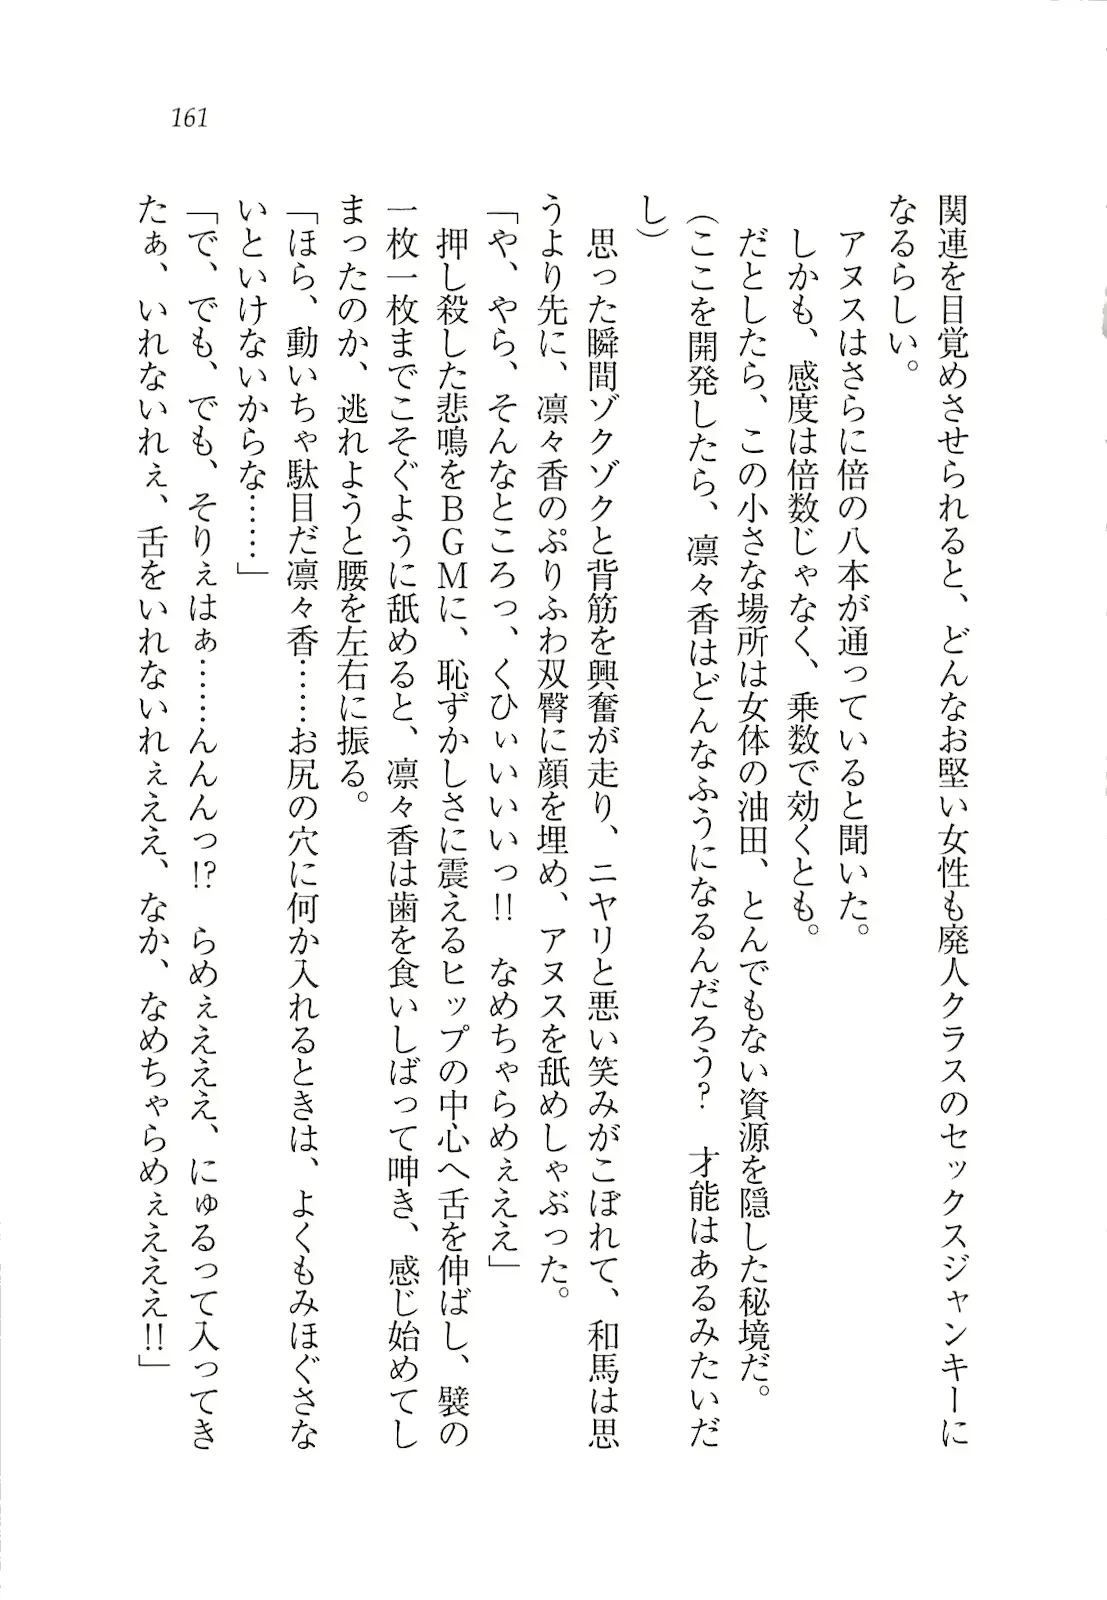 161
関連を目覚めさせられると、どんなお堅い女性も廃人クラスのセックスジャンキーに
なるらしい。
　アヌスはさらに倍の八本が通っていると聞いた。
　しかも、感度は倍数じゃなく、乗数で効くとも。
　だとしたら、この小さな場所は女体の油田、とんでもない資源を隠した秘境だ。
（ここを開発したら、凛々香はどんなふうになるんだろう？　才能はあるみたいだ
し）
　思った瞬間ゾクゾクと背筋を興奮が走り、ニヤリと悪い笑みがこぼれて、和馬は思
うより先に、凛々香のぷりふわ双臀に顔を埋め、アヌスを舐めしゃぶった。
「や、やら、そんなところっ、くひぃいいいっ!!　なめちゃらめぇええ」
　押し殺した悲鳴をＢＧＭに、恥ずかしさに震えるヒップの中心へ舌を伸ばし、襞の
一枚一枚までこそぐように舐めると、凛々香は歯を食いしばって呻き、感じ始めてし
まったのか、逃れようと腰を左右に振る。
「ほら、動いちゃ駄目だ凛々香……お尻の穴に何か入れるときは、よくもみほぐさな
いといけないからな……」
「で、でも、でも、そりぇはぁ……んんんっ!?　らめぇえええ、にゅるって入ってき
たぁ、いれないれぇ、舌をいれないれぇええ、なか、なめちゃらめぇえええ!!」